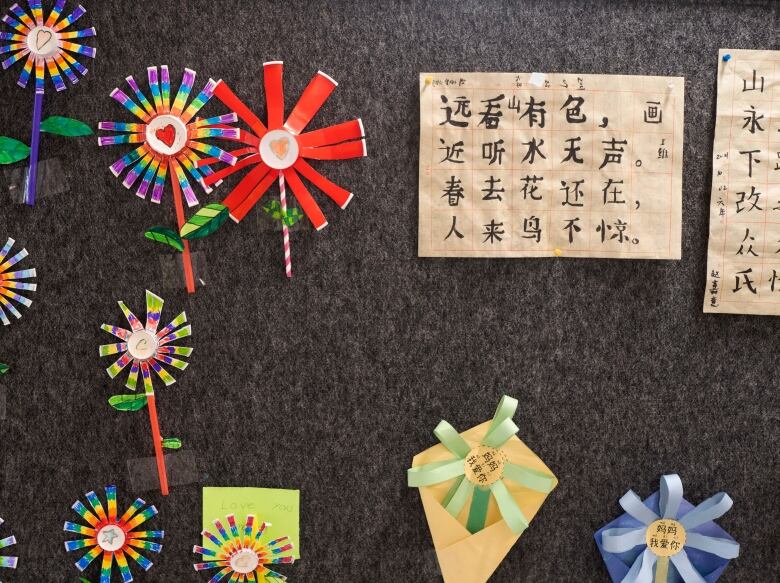 远看山有色，
画
王维
近听水无声。
春去花还在，
人来鸟不惊。
山
永
下
改
众
氏
Love You
妈妈
我爱你
妈妈
我爱你